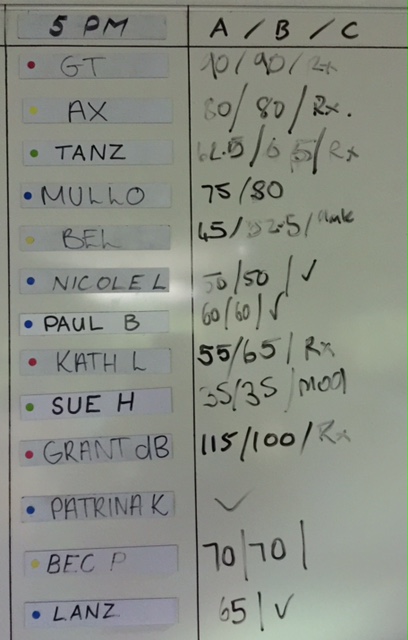 5 PM A / B / C
GT 90 / 90 / Rx
AX 80 / 80 / Rx.
TANZ 62.5 / 65 / Rx
MULLO 75 / 80
BEL 45 / 32.5 /
NICOLE L 50 / 50 / ✓
PAUL B 60 / 60 / ✓
KATH L 55 / 65 / Rx
SUE H 35 / 35 / mod
GRANT dB 115 / 100 / Rx
PATRINA K ✓
BEC P 70 / 70 /
LANZ 65 / ✓